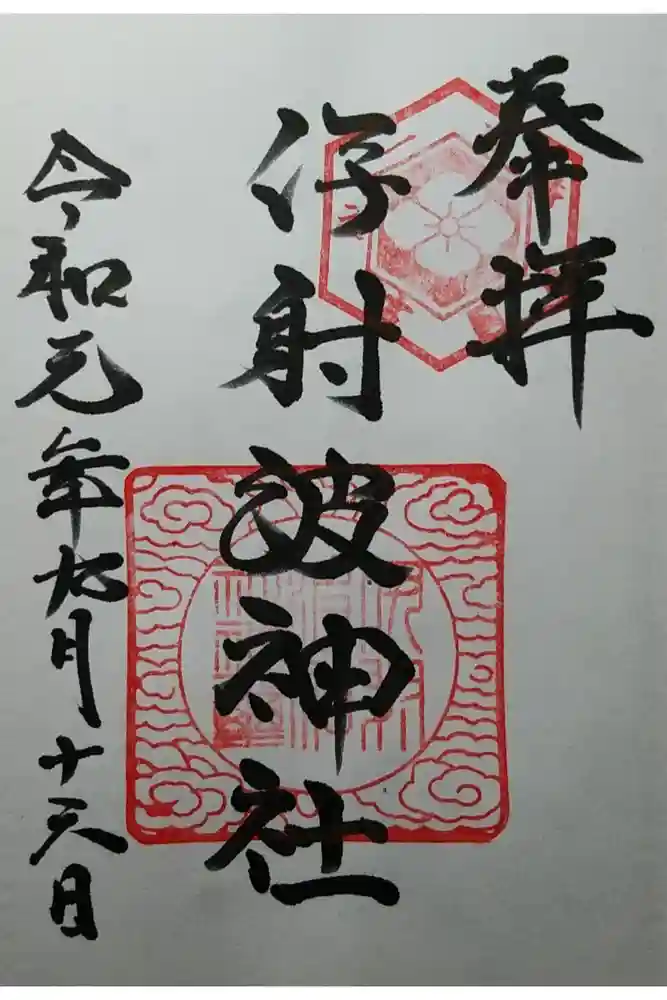 奉拝
伊射波神社
令和元年九月十六日